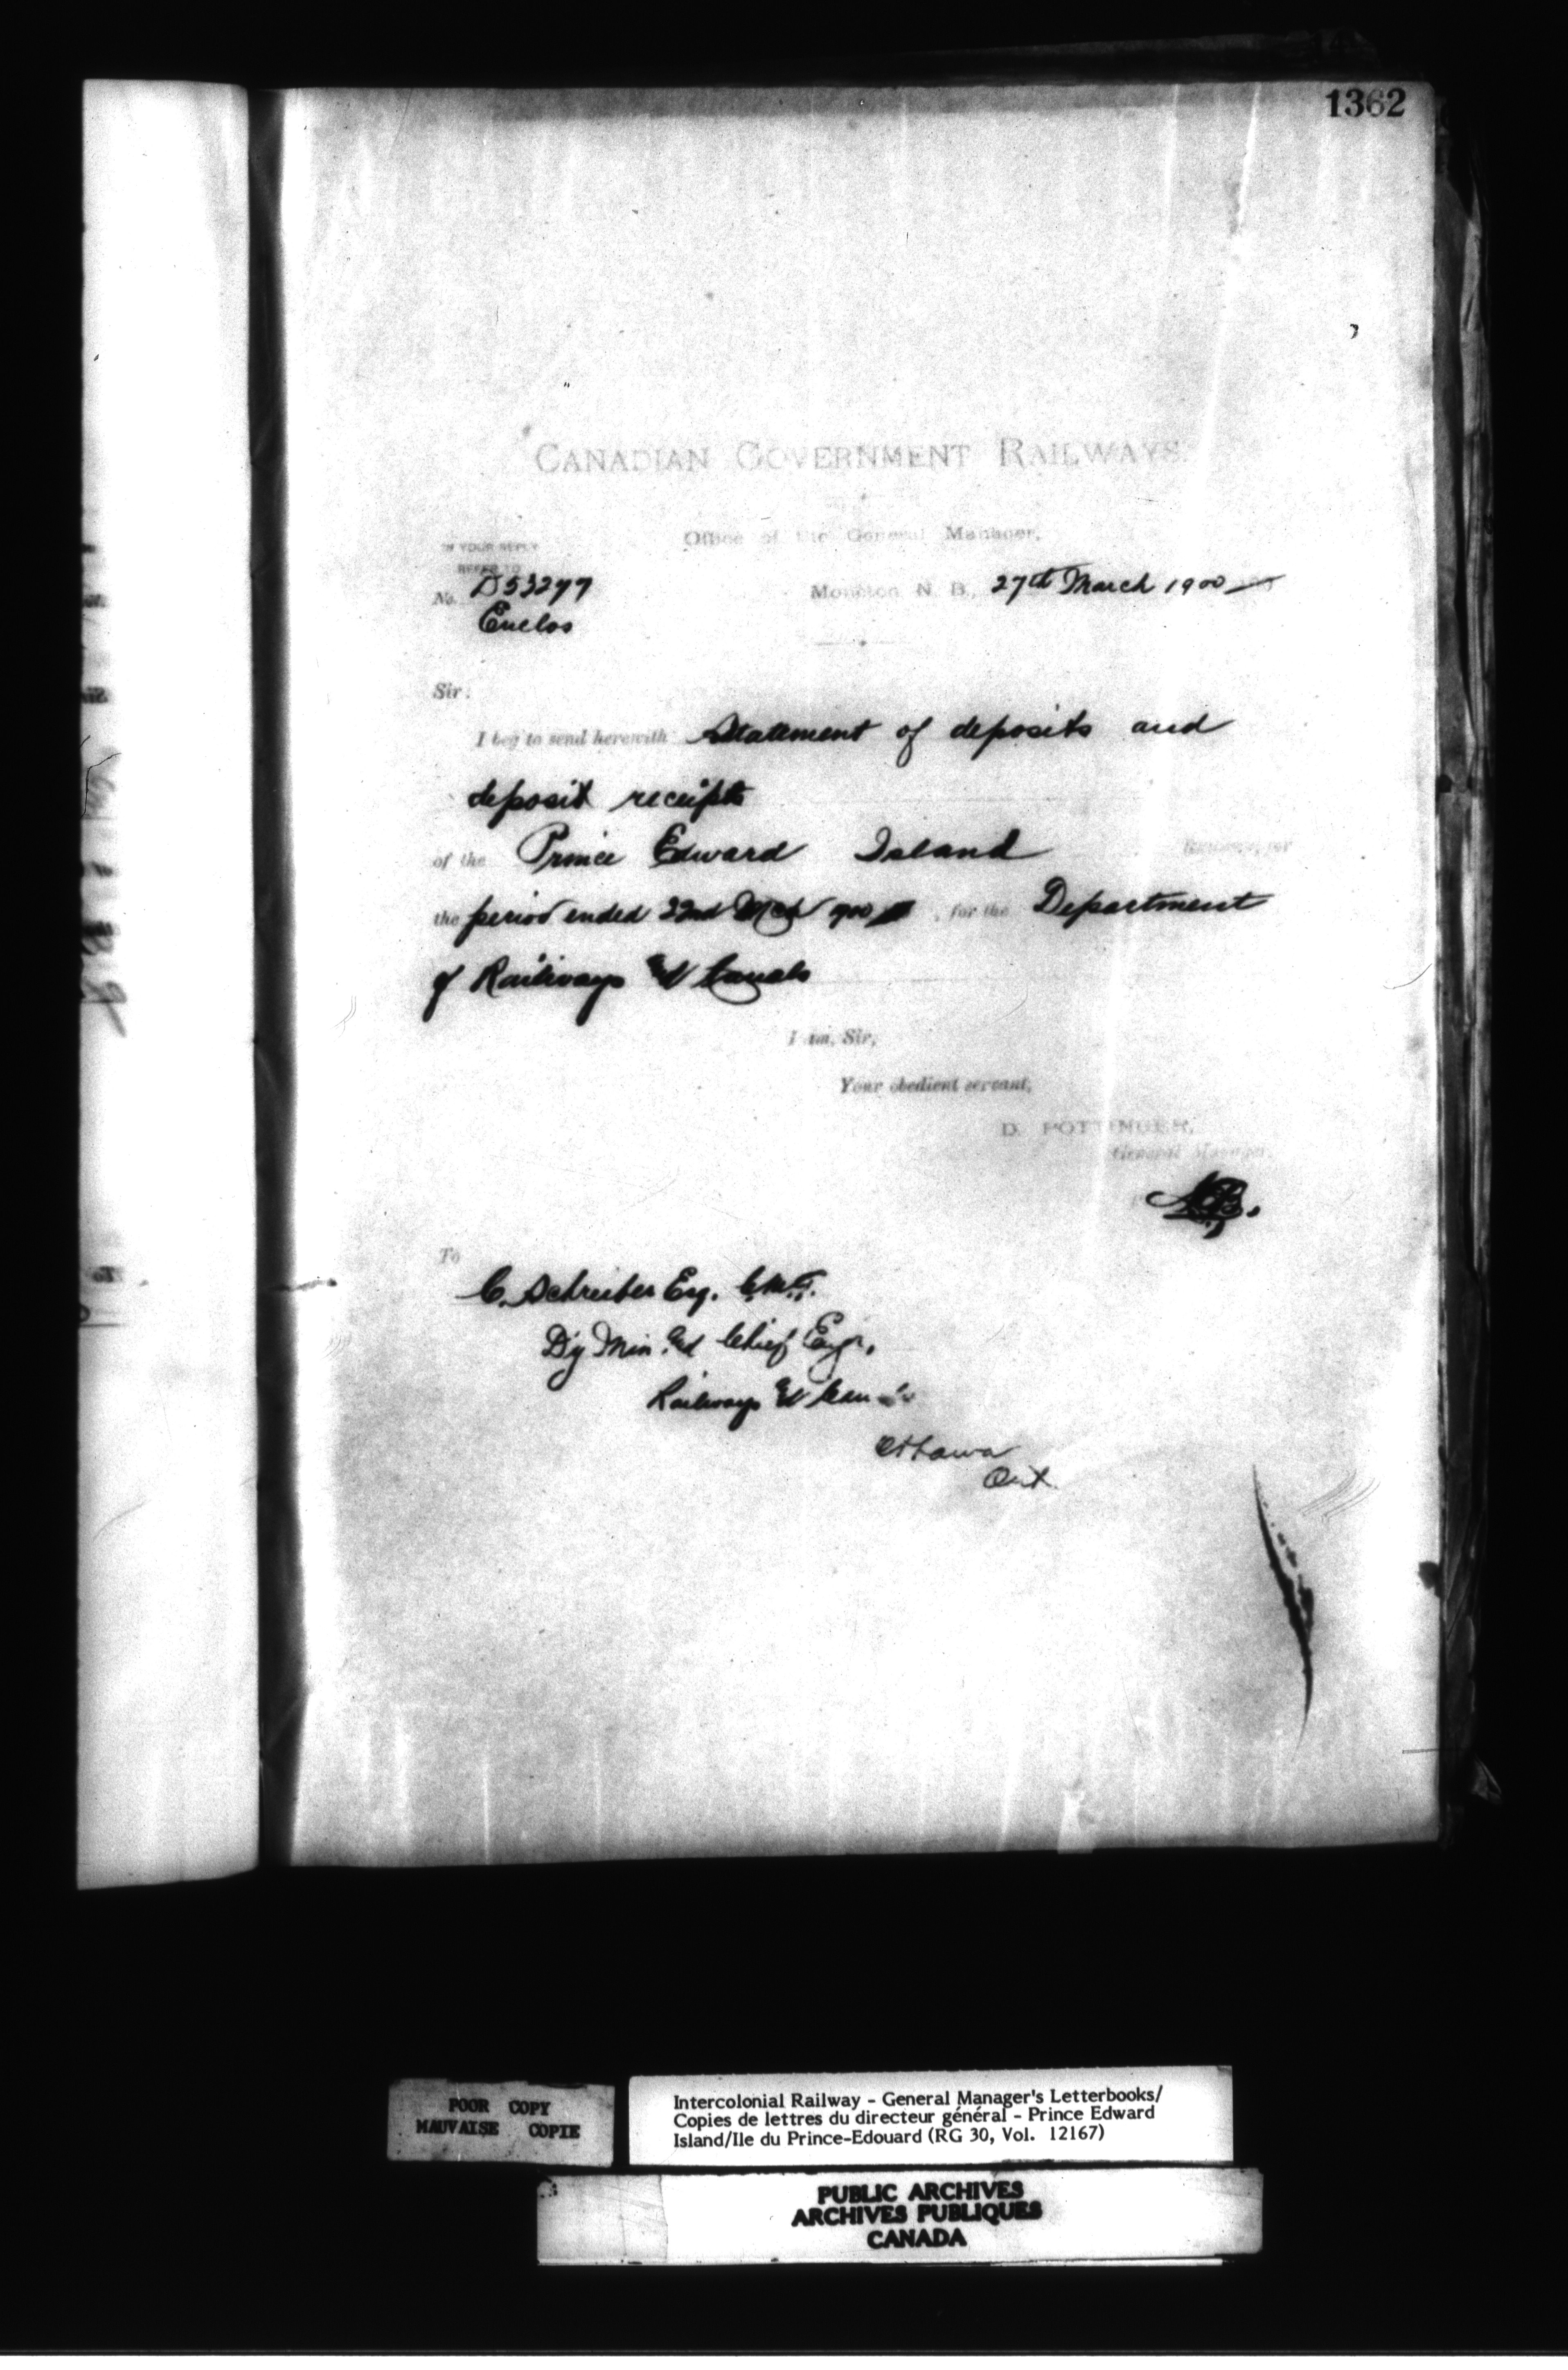 1362
CANADIAN GOVERNMENT RAILWAYS.
Office of the General Manager,
IN YOUR REPLY
REFER TO
No. D53277
Enclos
Moncton N. B., 27th March 1900
Sir:
I beg to send herewith Statement of deposits and
deposit receipts
of the Prince Edward Island Railway, for
the period ended 22nd Mch 1900, for the Department
of Railways & Canals
I am, Sir,
Your obedient servant,
D. POTTINGER,
General Manager.
To
C. Schreiber Esq. C.M.G.
Dy Min. & Chief Engr.
Railways & Canals
Ottawa
Ont.
POOR COPY
MAUVAISE COPIE
Intercolonial Railway - General Manager's Letterbooks/
Copies de lettres du directeur général - Prince Edward
Island/Ile du Prince-Edouard (RG 30, Vol. 12167)
PUBLIC ARCHIVES
ARCHIVES PUBLIQUES
CANADA